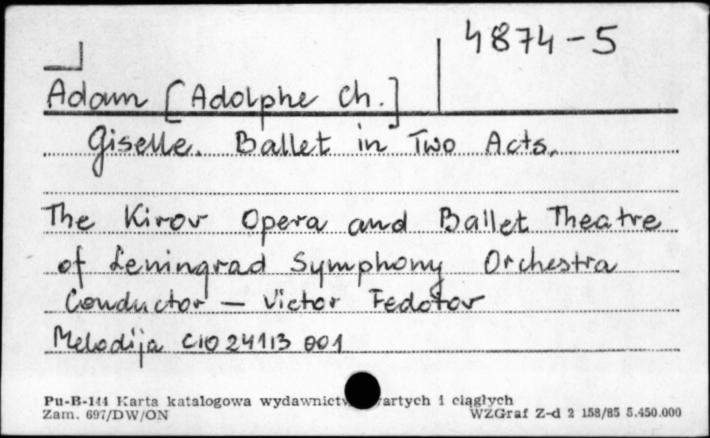 4874-5
Adam [Adolphe Ch.]
Giselle. Ballet in Two Acts.
The Kirov Opera and Ballet Theatre
of Leningrad Symphony Orchestra
Conductor – Victor Fedotov
Melodija C10 24113 001
Pu-B-144 Karta katalogowa wydawnictw zwartych i ciągłych
Zam. 697/DW/ON WZGraf Z-d 2 158/85 5.450.000